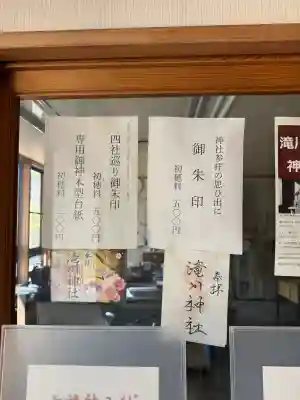 神社参拝の思ひ出に
御朱印
初穂料 五〇〇円
四社巡り御朱印
初穂料 五〇〇円
専用御神木型台紙
初穂料 三〇〇円
奉拝
滝川神社
滝川神社
滝川
神